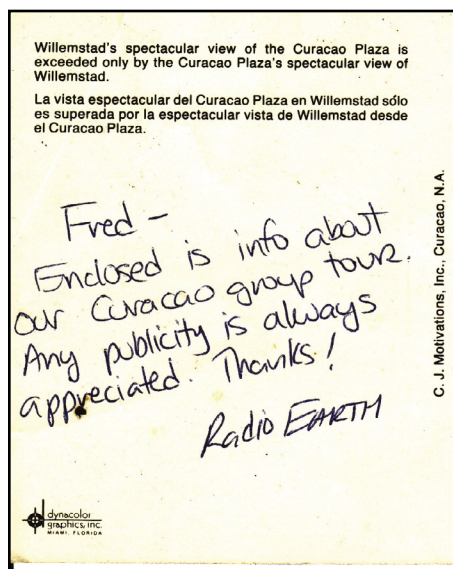 Willemstad's spectacular view of the Curacao Plaza is
exceeded only by the Curacao Plaza's spectacular view of
Willemstad.
La vista espectacular del Curacao Plaza en Willemstad sólo
es superada por la espectacular vista de Willemstad desde
el Curacao Plaza.
Fred -
Enclosed is info about
our Curacao group tour.
Any publicity is always
appreciated. Thanks!
Radio EARTH
C. J. Motivations, Inc., Curacao, N.A.
dynacolor
graphics, inc.
MIAMI, FLORIDA